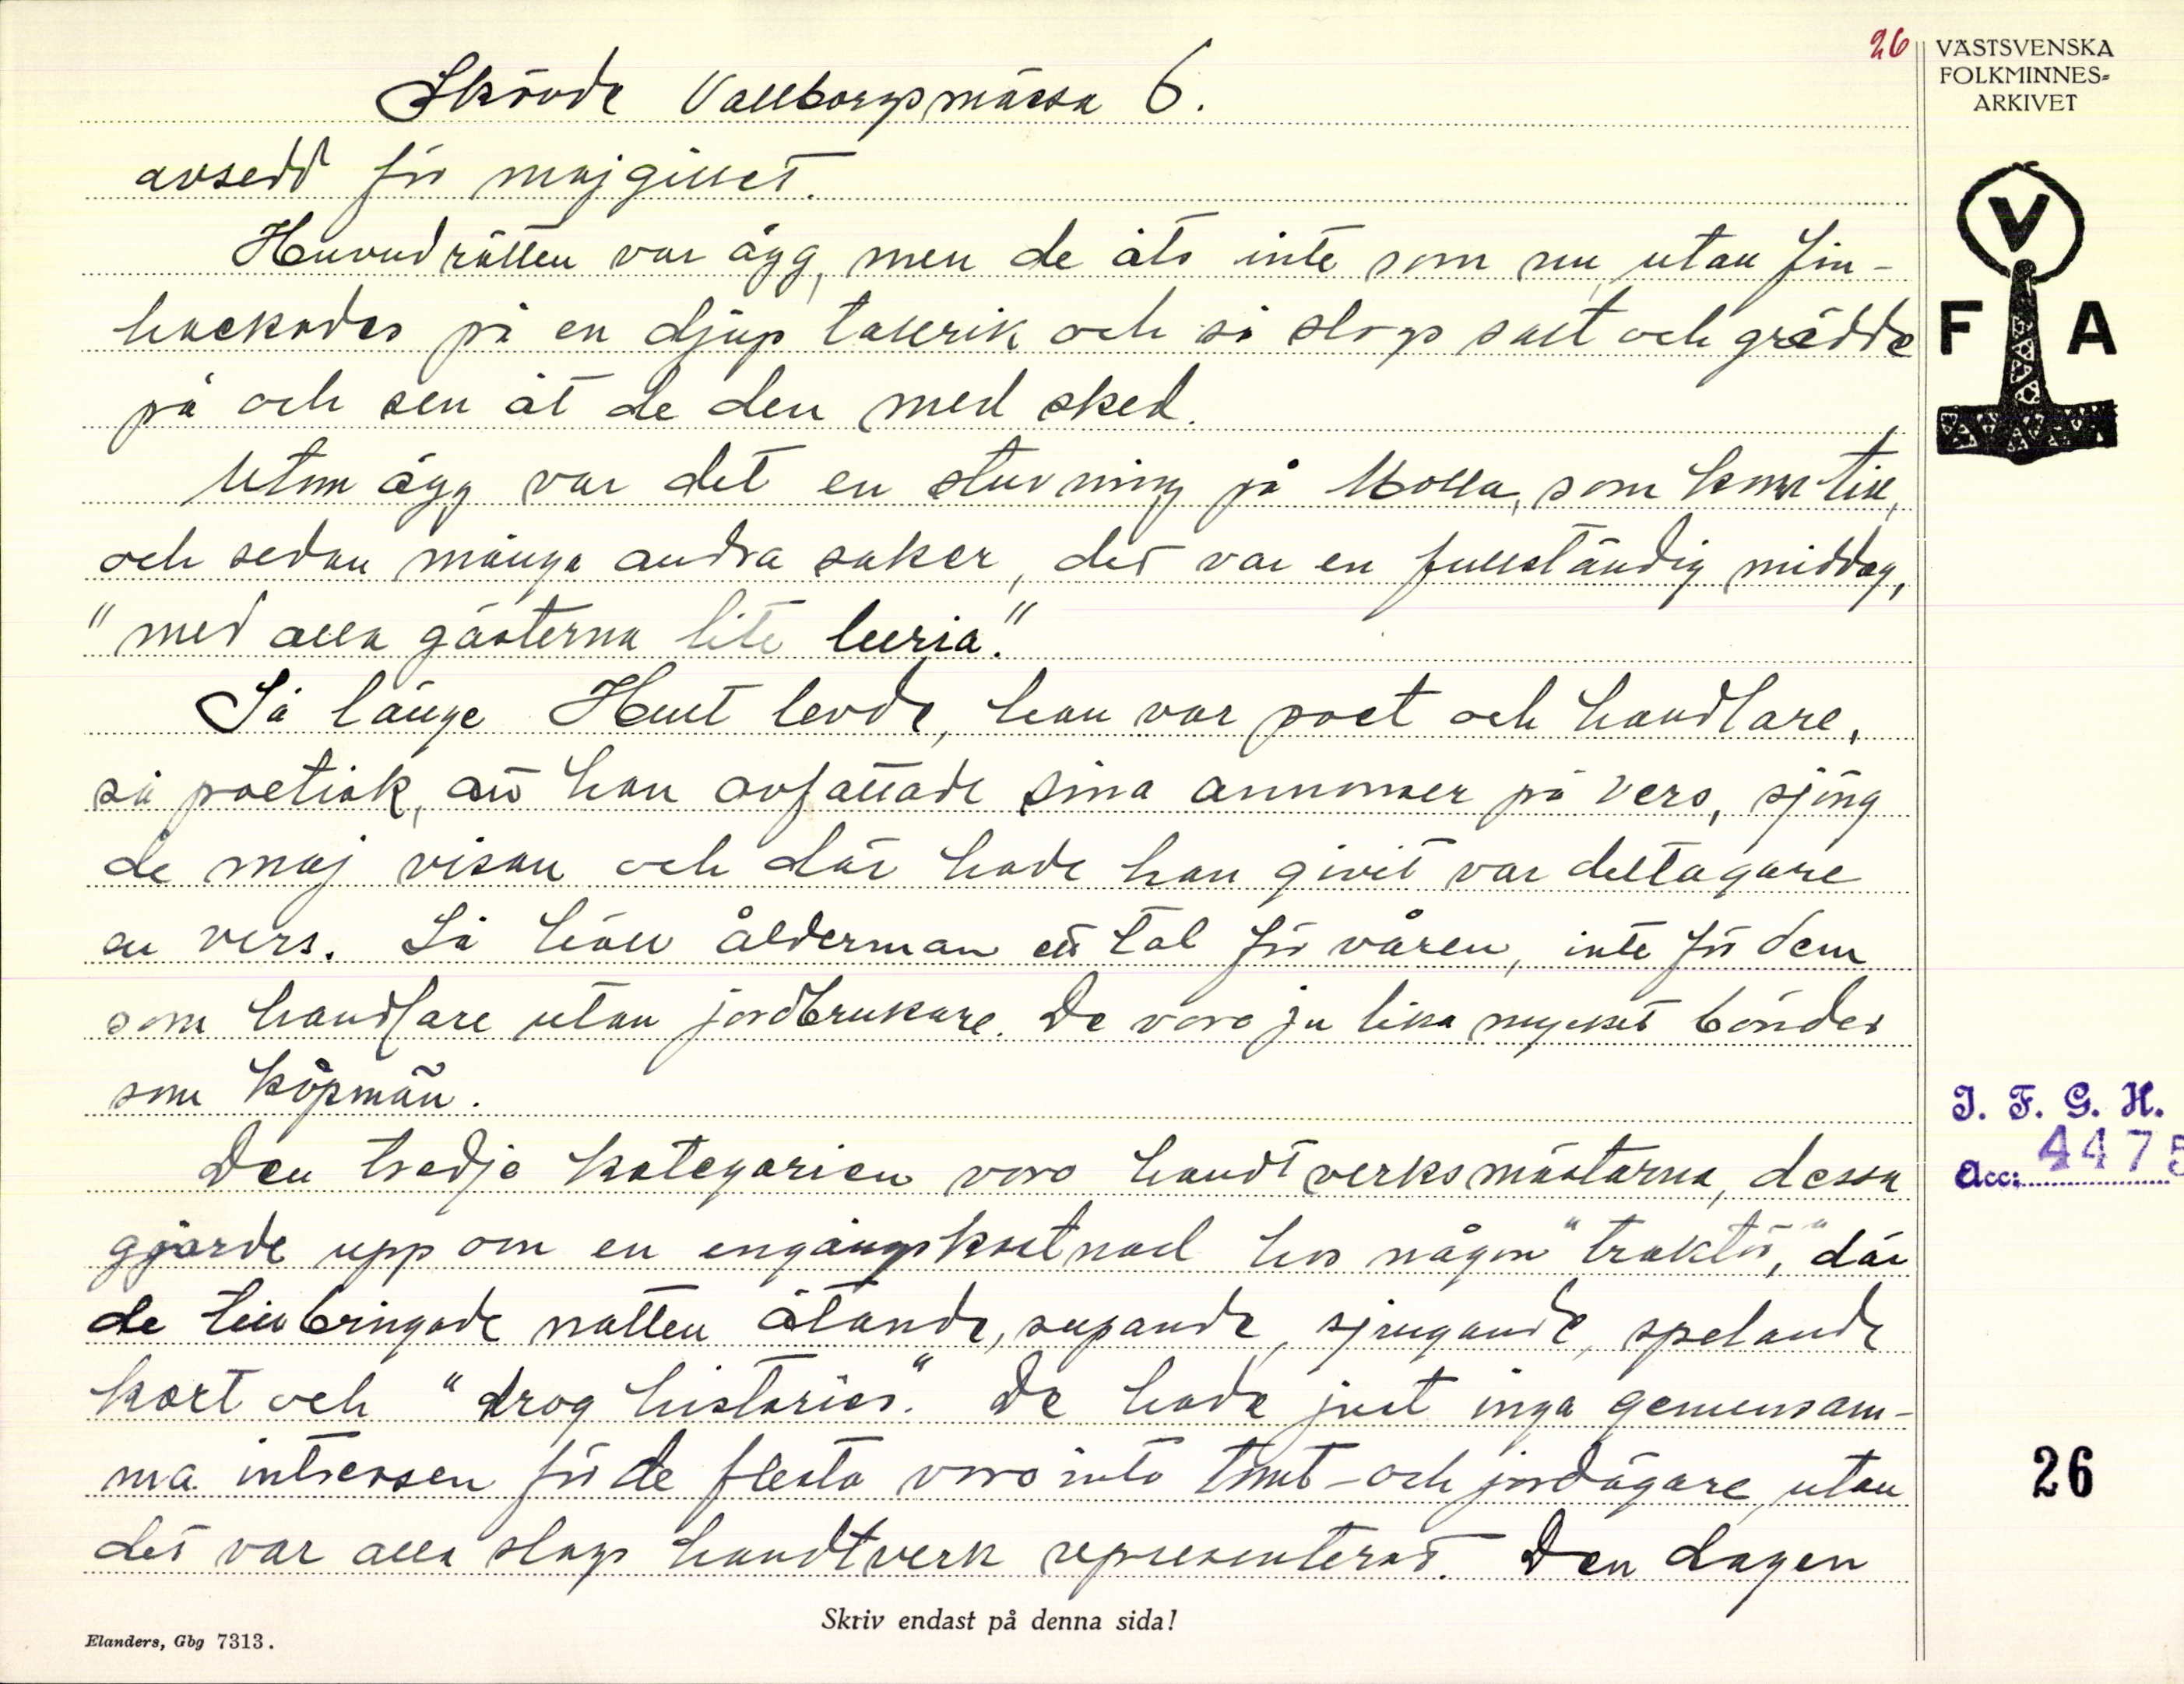 26
VÄSTSVENSKA
FOLKMINNES-
ARKIVET
Skövde Valborgsmässa 6.
avsedd för majgillet.
Huvudrätten var ägg, men de åts inte som nu, utan fin-
hackades på en djup tallrik och så slogs salt och grädde
på och sen åt de den med sked.
Utom ägg var det en stuvning på Molla, som kom till,
och sedan många andra saker, det var en fullständig middag,
"med alla gästerna lite leeria."
Så länge Hult levde, han var poet och handlare,
så poetisk, att han avfattade sina annonser på vers, sjöng
de maj visan och där hade han givit var deltagare
en vers. Så höll ålderman ett tal för våren, inte för dem
som handlare utan jordbrukare. De voro ju lika mycket bönder
som köpmän.
Den tredje kategorien voro handtverksmästarna, dessa
gjorde upp om en engångskostnad hos någon "traktör," där
de tillbringade natten ätande, supande, sjungande, spelande
kort och "drog historier". De hade just inga gemensam-
ma intressen för de flesta voro inte tomt- och jordägare, utan
det var alla slags handtverk representerat. Den dagen
V
F A
I. F. G. H.
Acc: 4475
26
Skriv endast på denna sida!
Elanders, Gbg 7313.